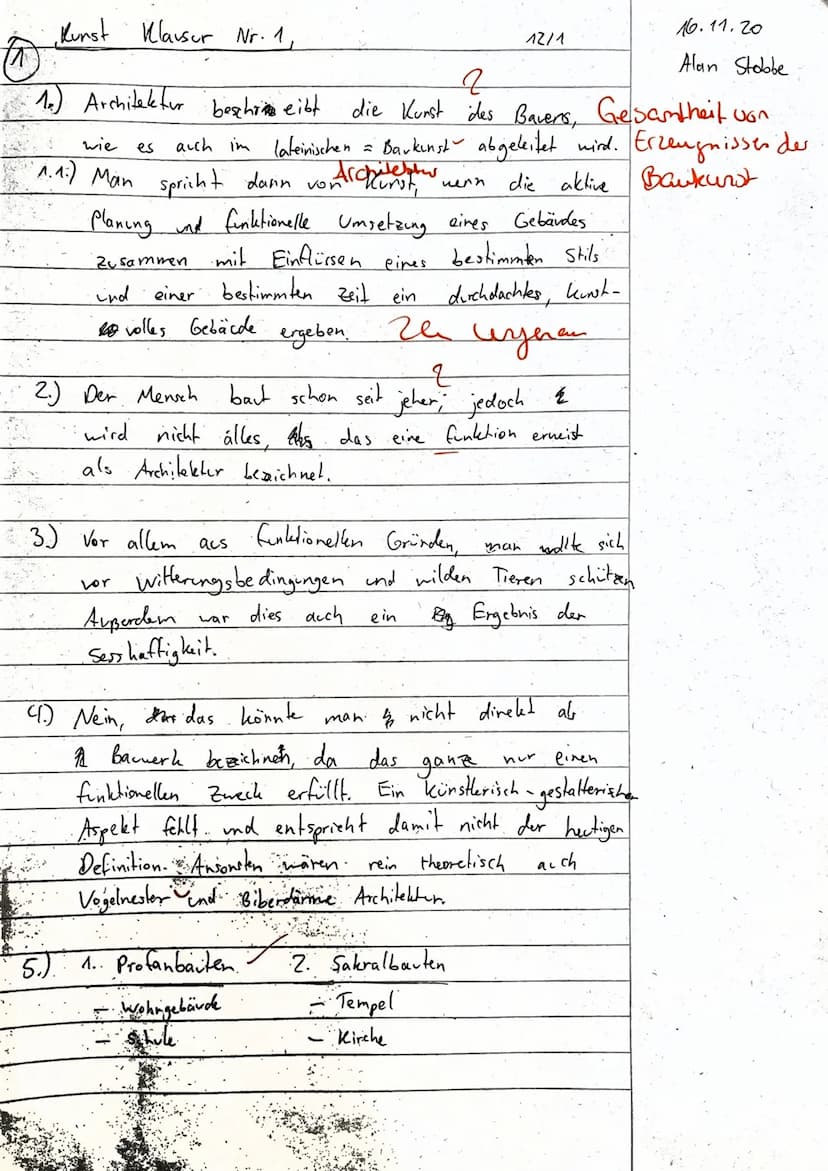 Kunst Klausur Nr. 1, 12/1 16.11.20
Alan Stobbe
1
1.) Architektur beschreibt die Kunst des Bauens, Gesamtheit von
wie es auch im lateinischen = Baukunst abgeleitet wird. Erzeugnissen der
Architektur
1.1.) Man spricht dann von Kunst, wenn die aktive Baukunst
Planung und funktionelle Umsetzung eines Gebäudes
zusammen mit Einflüssen eines bestimmten Stils
und einer bestimmten Zeit ein durchdachtes, kunst-
volles Gebäude ergeben.
2.) Der Mensch baut schon seit jeher, jedoch
wird nicht alles, das eine Funktion erweist
als Architektur bezeichnet.
3.) Vor allem aus funktionellen Gründen, man wollte sich
vor Witterungsbedingungen und wilden Tieren schützen
Außerdem war dies auch ein Ergebnis der
Sesshaftigkeit.
4.) Nein, das könnte man nicht direkt als
Bauwerk bezeichnen, da das ganze nur einen
funktionellen Zweck erfüllt. Ein künstlerisch-gestalterischer
Aspekt fehlt und entspricht damit nicht der heutigen
Definition. Ansonsten wären rein theoretisch auch
Vogelnester und Biberdämme Architektur.
5.) 1. Profanbauten 2. Sakralbauten
- Wohngebäude - Tempel
- Schule - Kirche